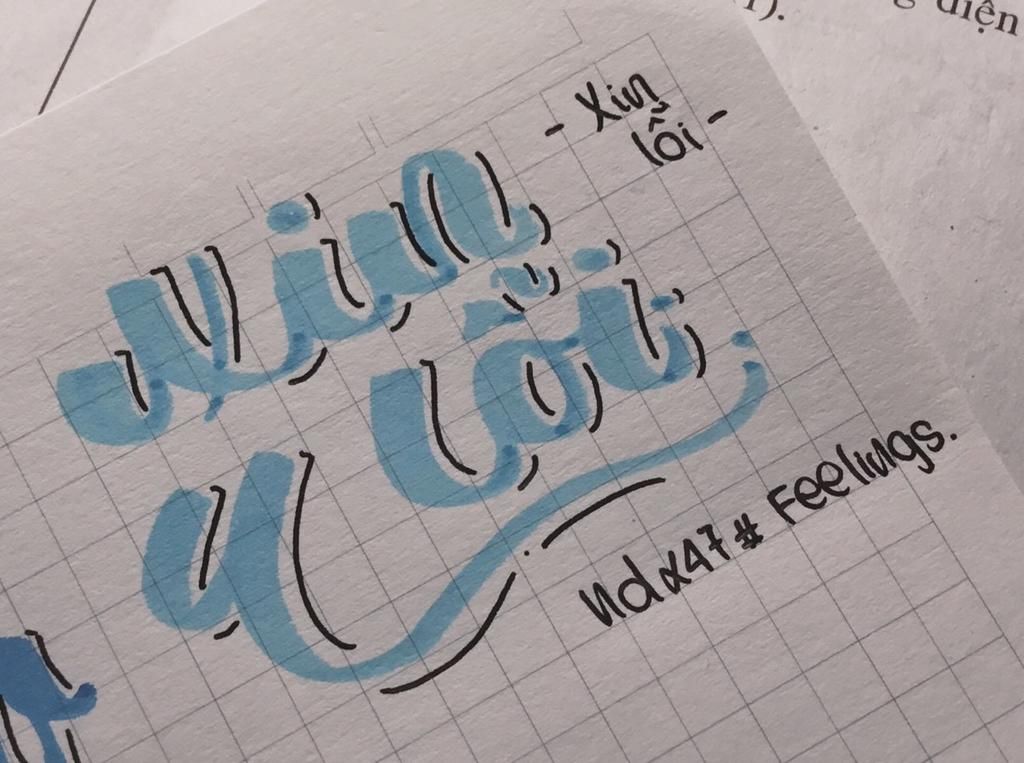 1).
g điện
- Xin
lỗi -
Xin
lỗi
ndα47# Feelings.